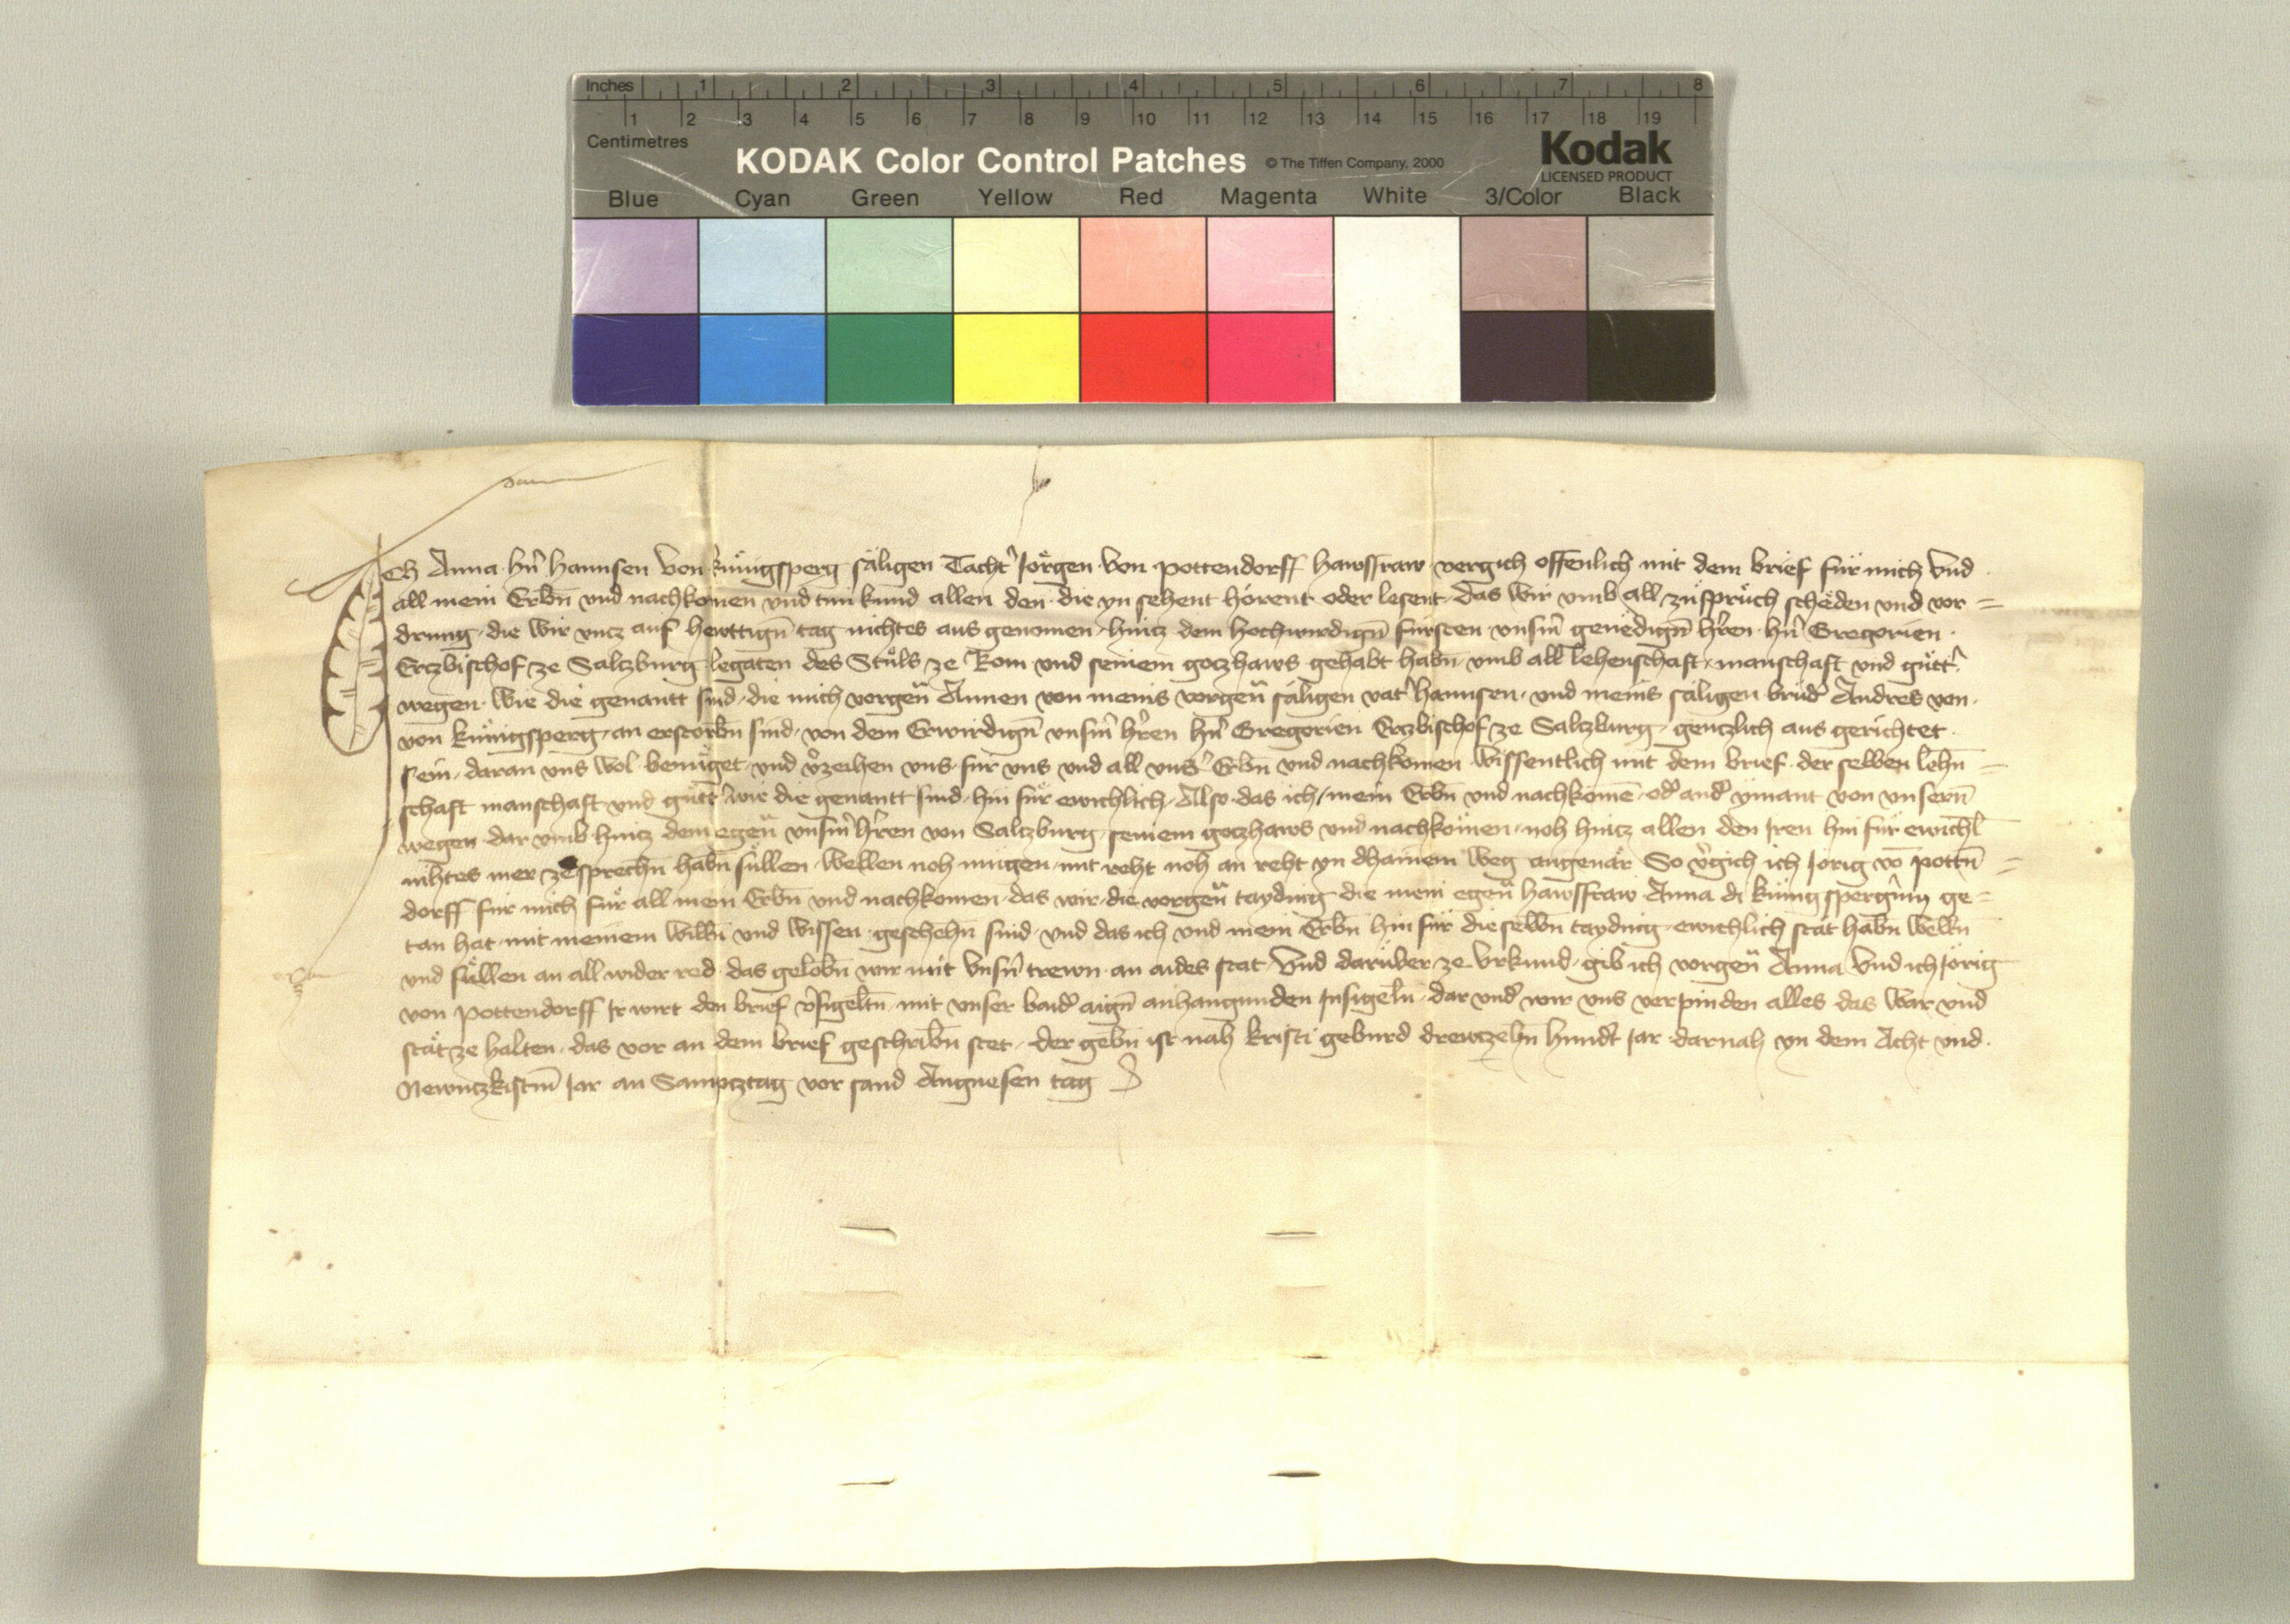 Inches 1 2 3 4 5 6 7 8
1 2 3 4 5 6 7 8 9 10 11 12 13 14 15 16 17 18 19
Centimetres
KODAK Color Control Patches © The Tiffen Company, 2000 Kodak
LICENSED PRODUCT
Blue Cyan Green Yellow Red Magenta White 3/Color Black
Ich Anna hn̄ hannsen von kuͤnigsperg saͤligen Tacht̓ Joͤrgen von pottendorff hawsfraw vergich offenlich mit dem brief fuͤr mich vnd
all mein Erbn̄ vnd nachkomen vnd tun kund allen den die yn sehent hoͤrent oder lesent das wir vmb all zuͤspruͤch scheͤden vnd vor =
drung die wir vncz auf hewttign̄ tag nichtes aus genomen hincz dem hochwirdign̄ fuͤrsten vnsm̄ genedign̄ hr̄en hn̄ Gregorien
Erczbischof ze Salczburg legaten des Stuͤls ze Rom vnd seinem goczhaws gehabt habn̄ vmb all lehenschaft manschaft vnd guͤtt̓
wegen wie die genantt sind die mich vorgen̄ Annen von meins vorgen̄ saͤligen vat̓ hannsen vnd meins saͤligen brud̓ Andres von
von kuͤnigsperg an erstorbn̄ sind von dem Erwirdign̄ vnsm̄ hr̄en hn̄ Gregorien Erczbischof ze Salczburg genczlich aus gerichtet
sein daran vns wol benuͤget vnd v̓zeihen vns fuͤr vns vnd all vns̓ Erbn̄ vnd nachkomen wissentlich mit dem brief der selben lehn̄ =
schaft manschaft vnd guͤtt̓ wie die genantt sind hin fuͤr ewichlich Also das ich mein Erbn̄ vnd nachkomē od̓ and̓ yemant von vnsern̄
wegen dar vmb hincz dem egen̄ vnsm̄ hr̄en von Salczburg seinem goczhaws vnd nachkomen noh hincz allen den Iren hin fuͤr ewichl̄
nihtes mer zesprechn̄ habn̄ suͤllen wellen noh muͤgen mit reht noh an reht yn dhainem weg angenaͤr So v̓gich ich Joͤrig vō pottn̄ =
dorff fuͤr mich fuͤr all mein Erbn̄ vnd nachkomen das wir die vorgen̄ tayding die mein egen̄ hawsfraw Anna di kuͤnigsperg̓in ge =
tan hat mit meinem willn̄ vnd wissen geschehn̄ sind vnd das ich vnd mein Erbn̄ hin fuͤr dieselbn̄ tayding ewichlich staͤt habn̄ welln̄
vnd suͤllen an all wider red das gelobn̄ wir mit vnsn̄ trewn an aides stat Vnd daruͤber ze vrkund gib ich vorgen̄ Anna vnd ich Joͤrig
von pottendorff Ir wirt den brief v̓sigeltn̄ mit vnser baid̓ aign̄ anhangunden Insigeln̄ dar vnd̓ wir vns verpinden alles das war vnd
staͤt ze halten das vor an dem brief geschribn̄ stet der gebn̄ ist nah kristi geburd drewzehn̄ hund̓t Jar darnah yn dem Acht vnd
Newnczkistm̄ Jar an Sampcztag vor sand Angnesen tag